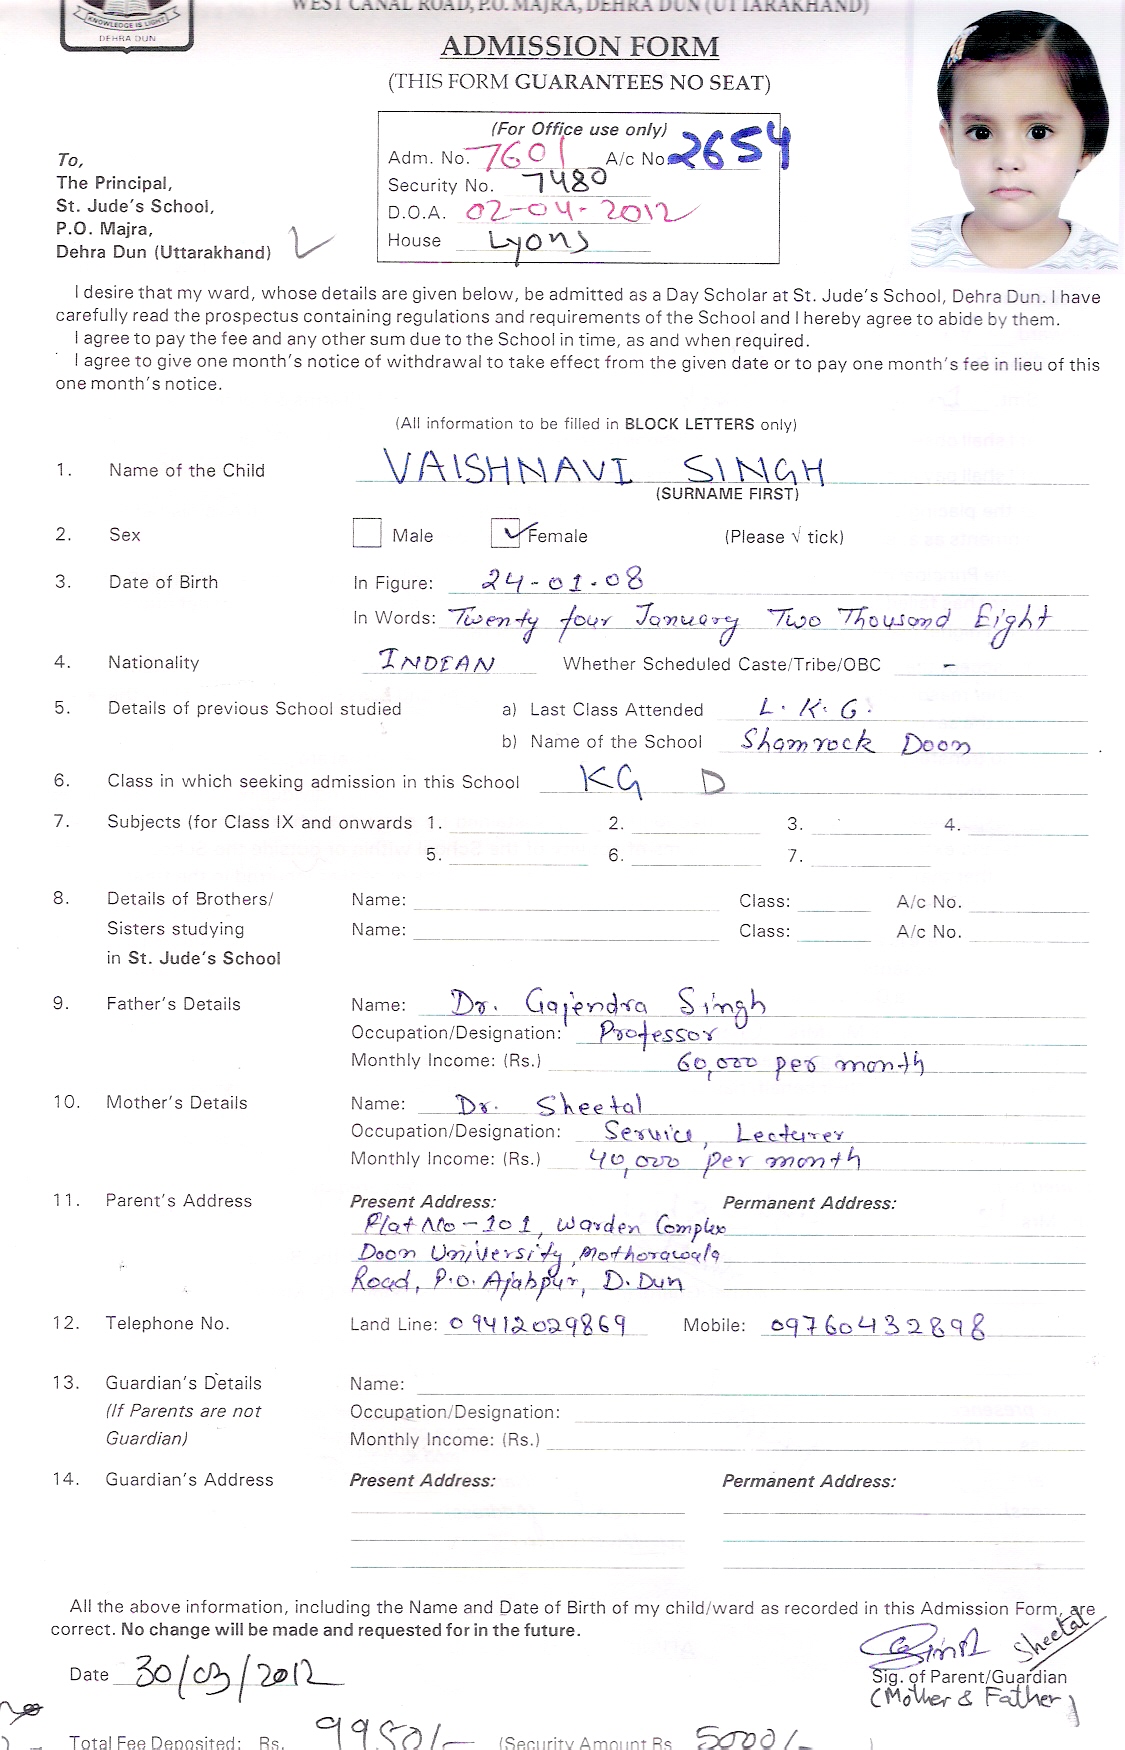 WEST CANAL ROAD, P.O. MAJRA, DEHRA DUN (UTTARAKHAND)
KNOWLEDGE IS LIGHT
DEHRA DUN
ADMISSION FORM
(THIS FORM GUARANTEES NO SEAT)
(For Office use only)
Adm. No. 7601 A/c No. 2654
Security No. 7480
D.O.A. 02-04-2012
House Lyons
To,
The Principal,
St. Jude's School,
P.O. Majra,
Dehra Dun (Uttarakhand)
I desire that my ward, whose details are given below, be admitted as a Day Scholar at St. Jude's School, Dehra Dun. I have
carefully read the prospectus containing regulations and requirements of the School and I hereby agree to abide by them.
I agree to pay the fee and any other sum due to the School in time, as and when required.
I agree to give one month's notice of withdrawal to take effect from the given date or to pay one month's fee in lieu of this
one month's notice.
(All information to be filled in BLOCK LETTERS only)
1. Name of the Child VAISHNAVI SINGH
(SURNAME FIRST)
2. Sex Male Female (Please √ tick)
3. Date of Birth In Figure: 24-01-08
In Words: Twenty four January Two Thousand Eight
4. Nationality INDIAN Whether Scheduled Caste/Tribe/OBC -
5. Details of previous School studied a) Last Class Attended L.K.G.
b) Name of the School Shamrock Doon
6. Class in which seeking admission in this School KG D
7. Subjects (for Class IX and onwards 1. 2. 3. 4.
5. 6. 7.
8. Details of Brothers/ Name: Class: A/c No.
Sisters studying Name: Class: A/c No.
in St. Jude's School
9. Father's Details Name: Dr. Gajendra Singh
Occupation/Designation: Professor
Monthly Income: (Rs.) 60,000 per month
10. Mother's Details Name: Dr. Sheetal
Occupation/Designation: Service, Lecturer
Monthly Income: (Rs.) 40,000 per month
11. Parent's Address Present Address: Permanent Address:
Flat No-101, Warden Complex
Doon University, Mothorawala
Road, P.O. Ajabpur, D.Dun
12. Telephone No. Land Line: 09412029869 Mobile: 09760432898
13. Guardian's Details Name:
(If Parents are not Occupation/Designation:
Guardian) Monthly Income: (Rs.)
14. Guardian's Address Present Address: Permanent Address:
All the above information, including the Name and Date of Birth of my child/ward as recorded in this Admission Form, are
correct. No change will be made and requested for in the future.
Sheetal
Date 30/03/2012 Sig. of Parent/Guardian
(Mother & Father)
Total Fee Deposited: Rs. 9950/- (Security Amount Rs 5000/- )